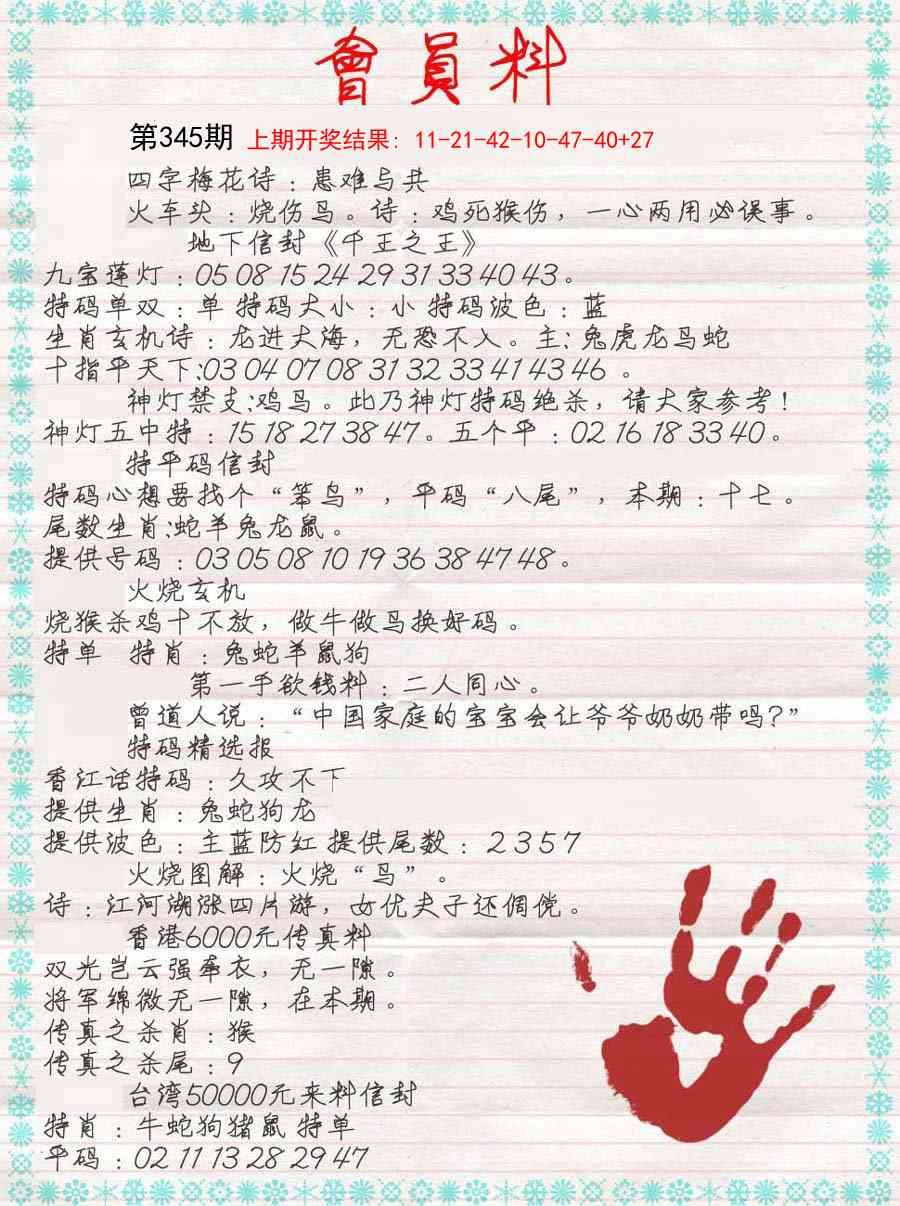 會員料
第345期 上期开奖结果：11-21-42-10-47-40+27
四字梅花诗：患难与共
火车头：烧伤鸟。诗：鸡死猴伤，一心两用必误事。
地下信封《千王之王》
九宝莲灯：05 08 15 24 29 31 33 40 43。
特码单双：单 特码大小：小 特码波色：蓝
生肖玄机诗：龙进大海，无恐不入。主:兔虎龙鸟蛇
十指平天下:03 04 07 08 31 32 33 41 43 46 。
神灯禁支:鸡鸟。此乃神灯特码绝杀，请大家参考！
神灯五中特：15 18 27 38 47。五个平：02 16 18 33 40。
特平码信封
特码心想要找个“笨鸟”，平码“八尾”，本期：十七。
尾数生肖:蛇羊兔龙鼠。
提供号码：03 05 08 10 19 36 38 47 48。
火烧玄机
烧猴杀鸡十不放，做牛做鸟换好码。
特单 特肖：兔蛇羊鼠狗
第一手欲钱料：二人同心。
曾道人说：“中国家庭的宝宝会让爷爷奶奶带吗?”
特码精选报
香江话特码：久攻不下
提供生肖：兔蛇狗龙
提供波色：主蓝防红 提供尾数：2 3 5 7
火烧图解：火烧“鸟”。
诗：江河湖涨四片游，女优夫子还倜傥。
香港6000元传真料
双光岂云强牵衣，无一隙。
将军绵微无一隙，在本期。
传真之杀肖：猴
传真之杀尾：9
台湾50000元来料信封
特肖：牛蛇狗猪鼠 特单
平码：02 11 13 28 29 47